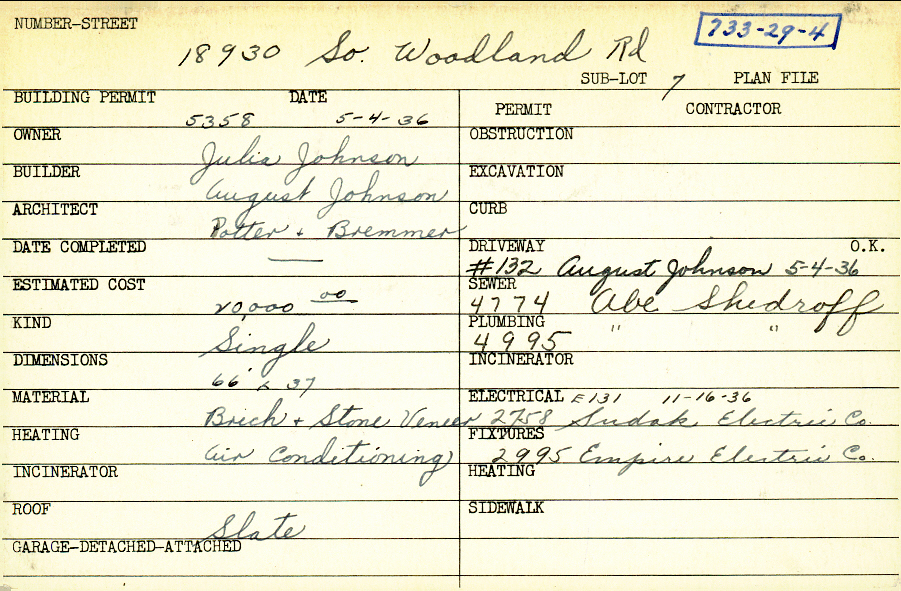 NUMBER-STREET
18930 So. Woodland Rd
733-29-4
SUB-LOT 7 PLAN FILE
BUILDING PERMIT DATE
5358 5-4-36
OWNER
Julia Johnson
BUILDER
August Johnson
ARCHITECT
Potter + Bremmer
DATE COMPLETED
—
ESTIMATED COST
20,000 00
KIND
Single
DIMENSIONS
66' x 37
MATERIAL
Brick + Stone Veneer
HEATING
Air Conditioning
INCINERATOR
ROOF
Slate
GARAGE-DETACHED-ATTACHED
PERMIT CONTRACTOR
OBSTRUCTION
EXCAVATION
CURB
DRIVEWAY O.K.
#132 August Johnson 5-4-36
SEWER
4774 Abe Shedroff
PLUMBING
4995 " "
INCINERATOR
ELECTRICAL E131 11-16-36
2758 Sudak Electric Co.
FIXTURES
2995 Empire Electric Co.
HEATING
SIDEWALK